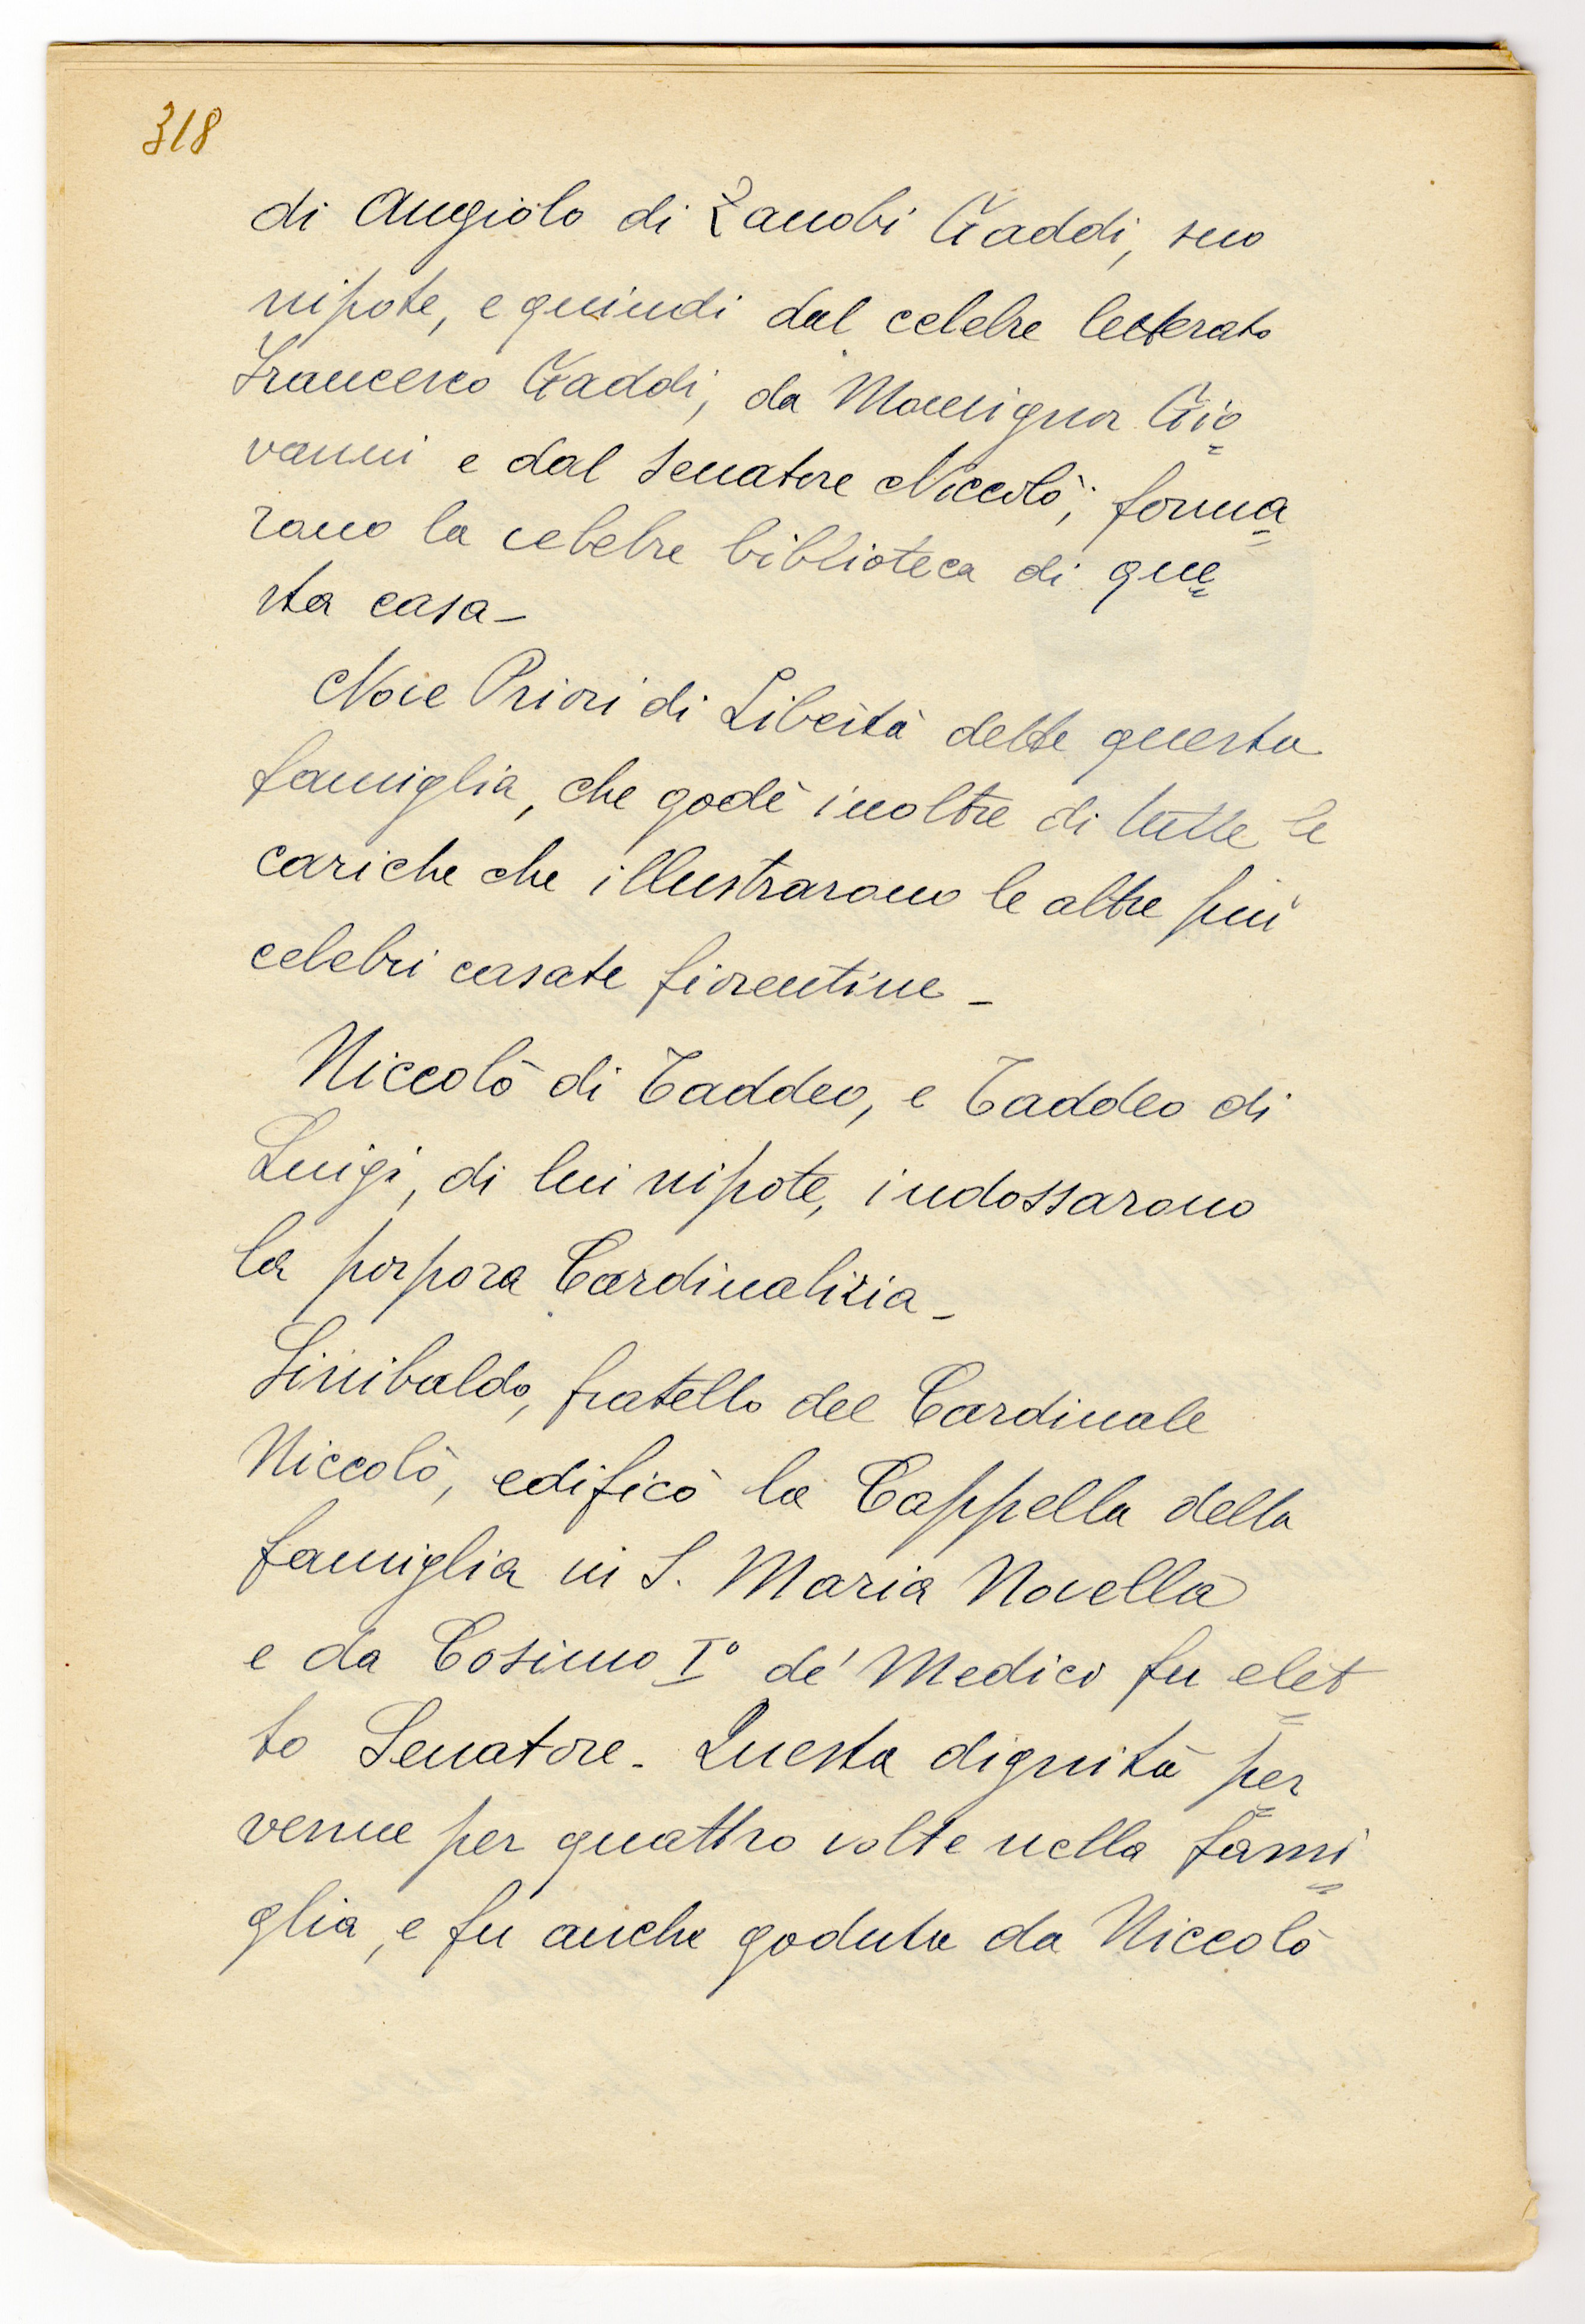 318
di Angiolo di Zanobi Gaddi, suo
nipote, e quindi dal celebre letterato
Francesco Gaddi, da Monsignor Gio=
vanni e dal Senatore Niccolò; forma=
rono la celebre biblioteca di que=
sta casa_
Nove Priori di Libertà dette questa
famiglia, che godè inoltre di tutte le
cariche che illustrarono le altre più
celebri casate fiorentine_
Niccolò di Taddeo, e Taddeo di
Luigi, di lui nipote, indossarono
la porpora Cardinalizia_
Sinibaldo, fratello del Cardinale
Niccolò, edificò la Cappella della
famiglia in S. Maria Novella
e da Cosimo I° de' Medici fu elet=
to Senatore_ Questa dignità per=
venne per quattro volte nella fami=
glia, e fu anche goduta da Niccolò